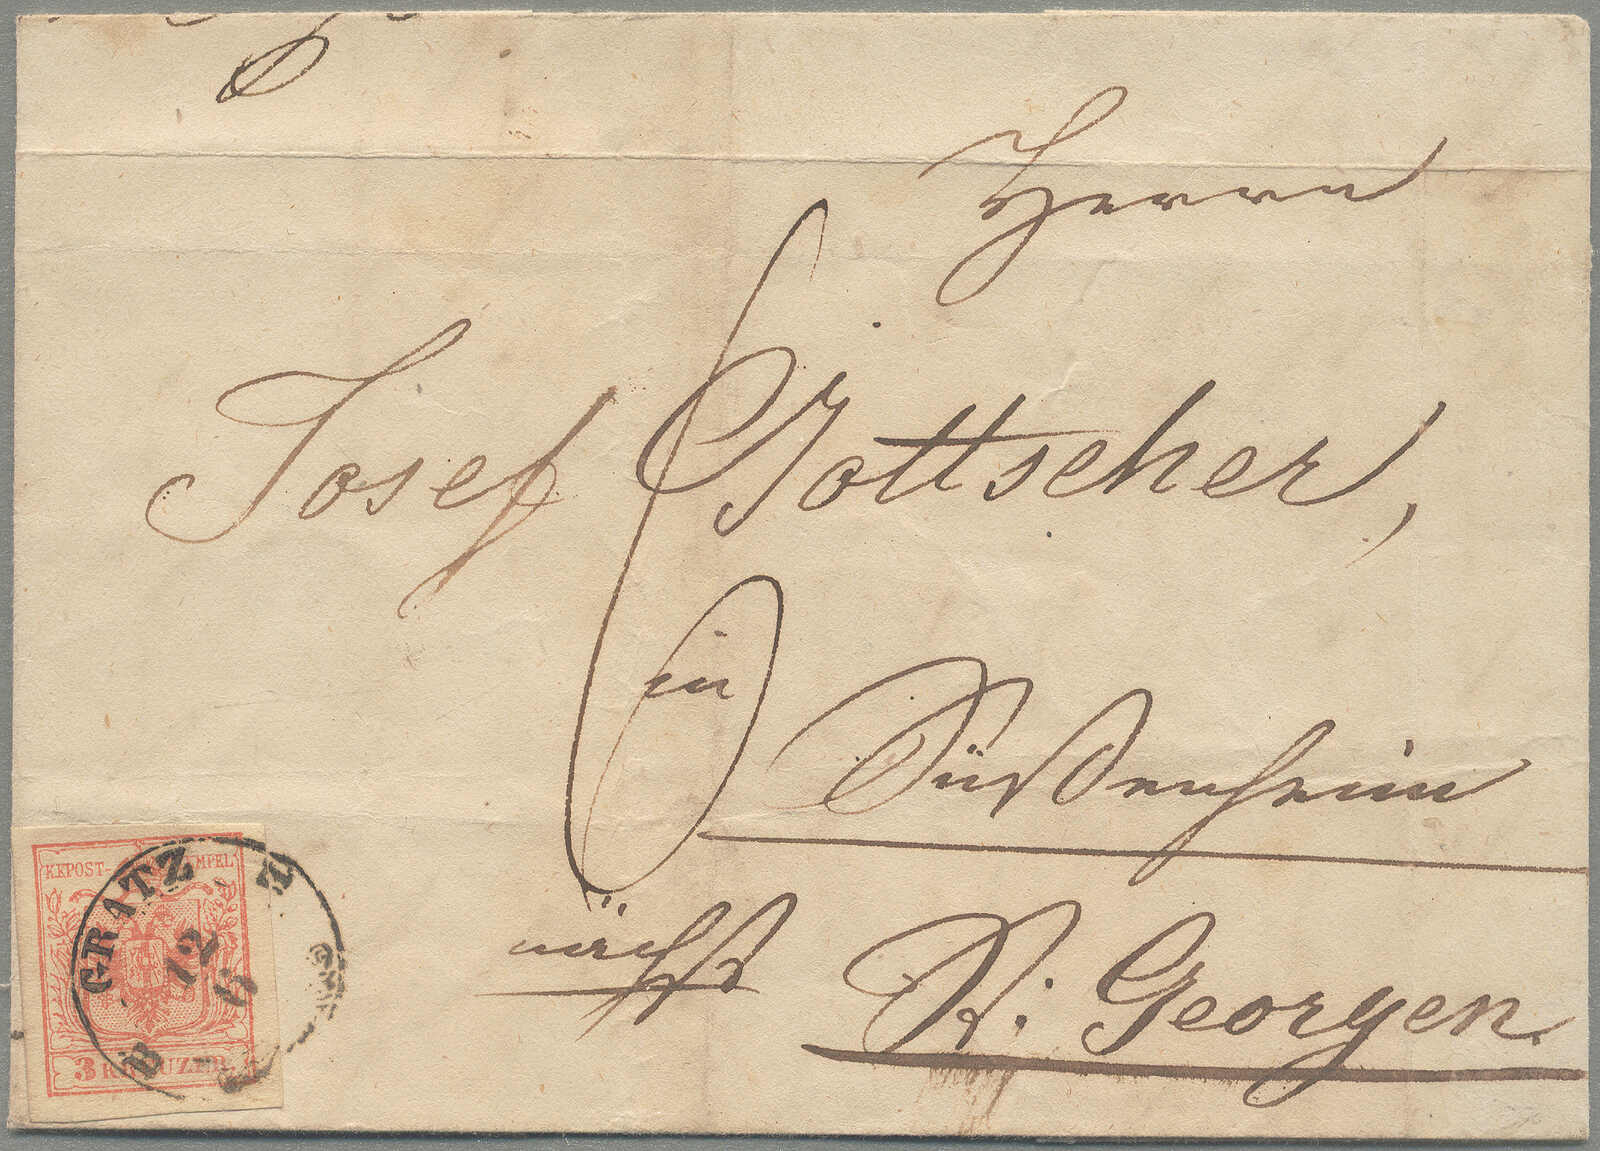 Herrn
Josef Gottscher,
in
nächst
St: Georgen.
KKPOST-STEMPEL
3 KREUZER
GRATZ
12
6